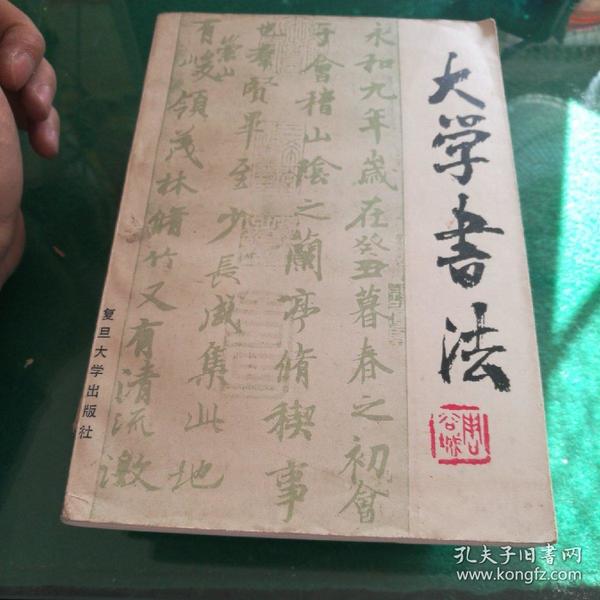 大学书法
永和九年岁在癸丑暮春之初會
于會稽山隂之蘭亭脩稧事
也羣賢畢至少長咸集此地
有崇山峻領茂林脩竹又有清流激
复旦大学出版社
孔夫子旧书网
www.kongfz.com